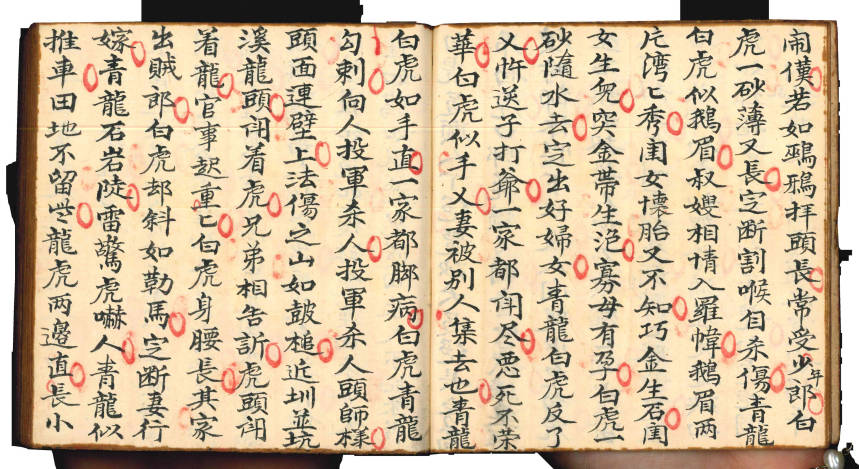 閙僕若如鵶鴉拜頭長常受少年郎白
虎一砂薄又長定断割喉自杀傷青龍
白虎似鵝眉叔嫂相情入羅幃鵝眉两
片湾匕秀闺女懷胎又不知巧金生石闺
女生兔突金帶生滟寡母有孕白虎一
砂隨水去定出好婦女青龍白虎反了
乂忤送子打爺一家都闬尽悪死不荣
華白虎似手乂妻被别人集去也青龍
白虎如手直一家都脚病白虎青龍
勾刺向人投軍杀人投軍杀人頭師様
頭面連壁上法傷之山如皷槌近圳並坑
溪龍頭闬着虎兄弟相告訴虎頭闬
着龍官事起重匕白虎身腰長其家
出賊郎白虎却斜如勒馬定断妻行
嫁青龍石岩陡雷驚虎嚇人青龍似
推車田地不留些龍虎两邉直長小